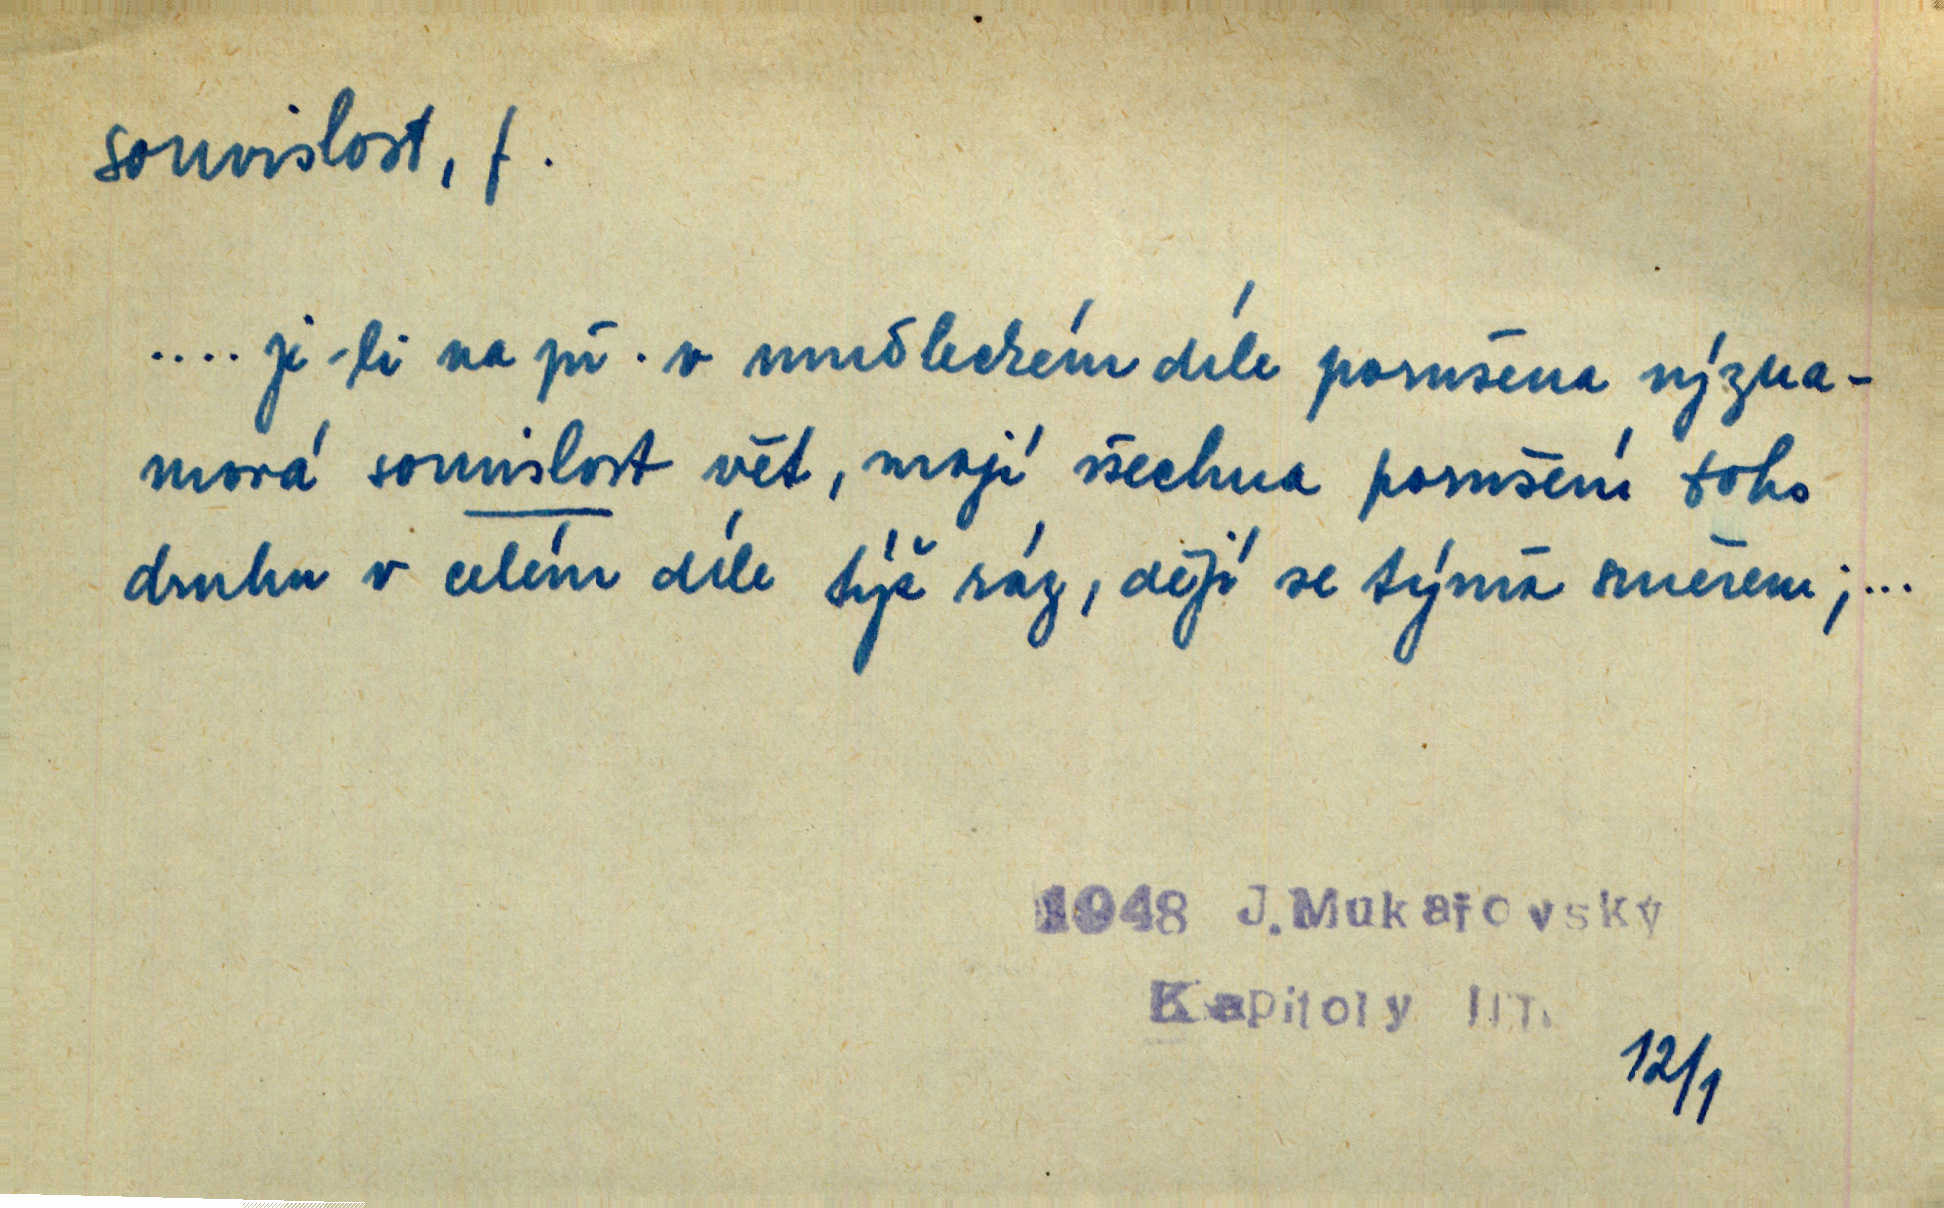 souvislost, f.
.... je-li na př. v uměleckém díle porušena význa-
mová souvislost vět, mají všechna porušení toho
druhu v celém díle týž ráz, dějí se týmž směrem; ...
1948 J. Mukařovský
Kapitoly III.
12/1